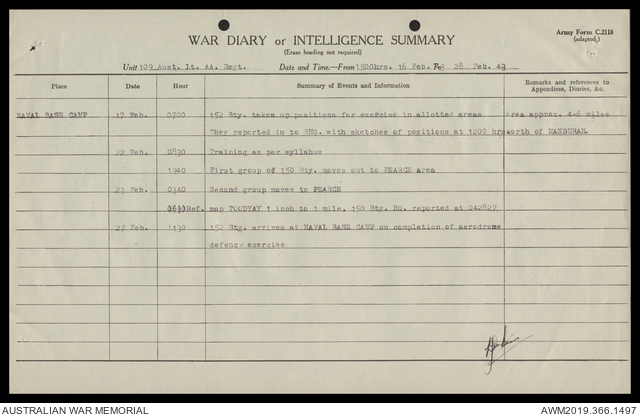 WAR DIARY or INTELLIGENCE SUMMARY
(Erase heading not required)
Army Form C.2118
(adapted)
Unit 109 Aust. Lt. AA. Regt. Date and Time.—From 1500hrs. 16 Feb. To 28 Feb. 43
Place Date Hour Summary of Events and Information Remarks and references to Appendices, Diaries, &c.
NAVAL BASE CAMP 17 Feb. 0700 152 Bty. takes up positions for exercise in allotted areas Area approx. 4-6 miles
They reported in to RHQ. with sketches of positions at 1200 hrs north of MANDURAH.
22 Feb. 0830 Training as per syllabus
1940 First group of 150 Bty. moves out to PEARCE area
23 Feb. 0340 Second group moves to PEARCE
Ref. map TOODYAY 1 inch to 1 mile, 150 Bty. HQ. reported at 042827
27 Feb. 1130 152 Bty. arrives at NAVAL BASE CAMP on completion of aerodrome
defence exercise
AUSTRALIAN WAR MEMORIAL AWM2019.366.1497